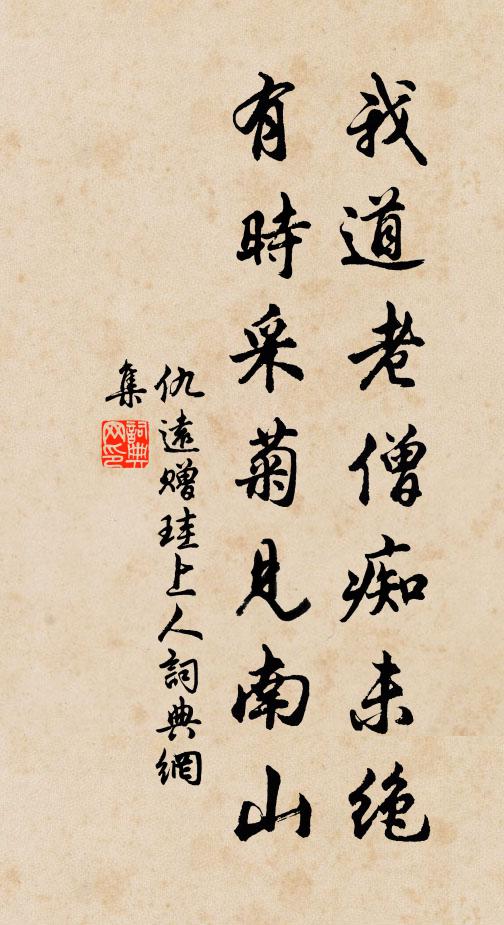 我道老僧痴未绝
有時采菊見南山
仇遠赠珪上人詞典網
集
詞典
网印